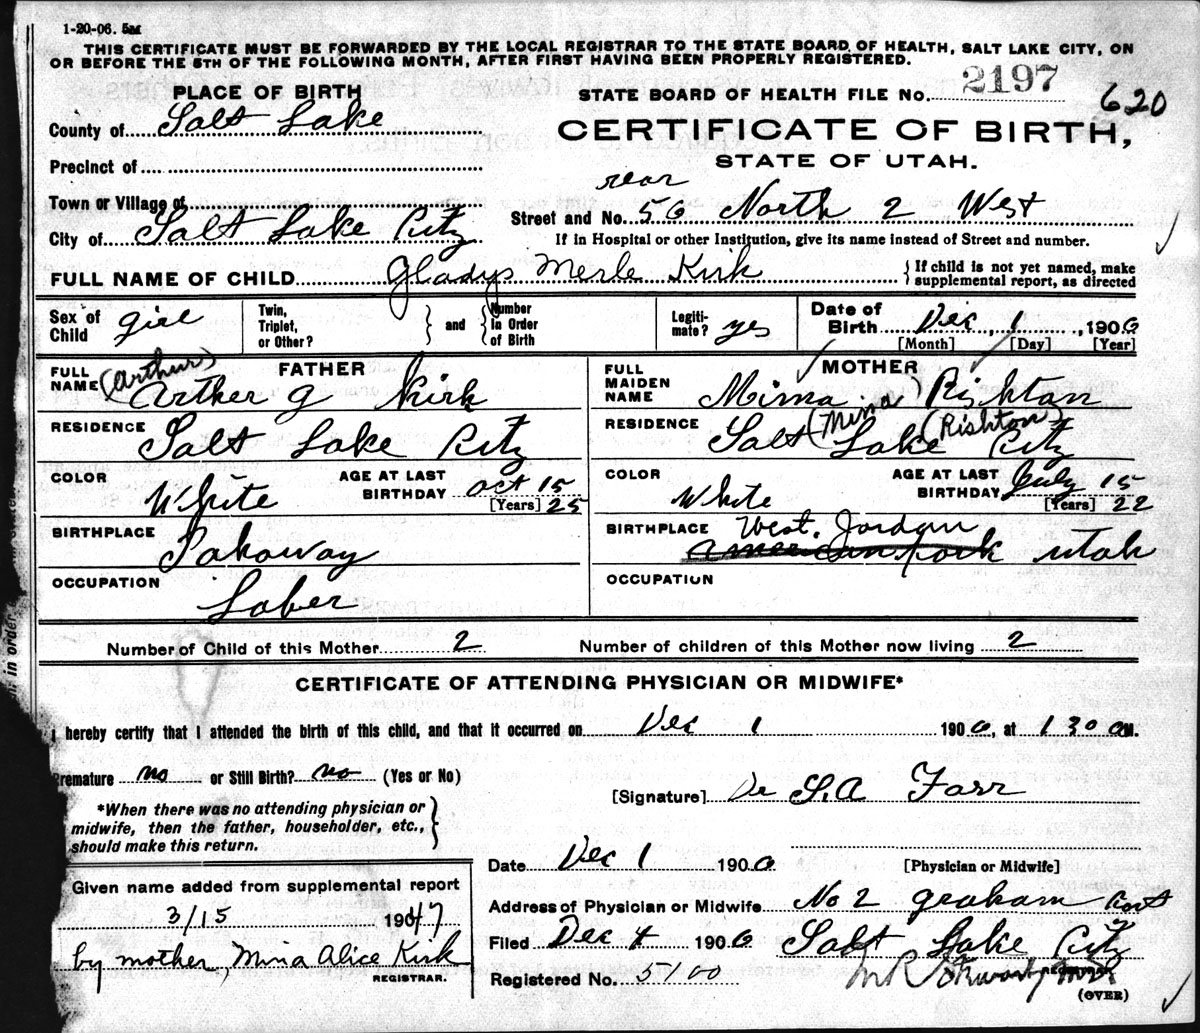 1-20-06. 5M
THIS CERTIFICATE MUST BE FORWARDED BY THE LOCAL REGISTRAR TO THE STATE BOARD OF HEALTH, SALT LAKE CITY, ON
OR BEFORE THE 5TH OF THE FOLLOWING MONTH, AFTER FIRST HAVING BEEN PROPERLY REGISTERED.
PLACE OF BIRTH
STATE BOARD OF HEALTH FILE NO. 2197 620
County of Salt Lake
CERTIFICATE OF BIRTH,
STATE OF UTAH.
Precinct of
Town or Village of
rear
Street and No. 56 North 2 West
City of Salt Lake City
If in Hospital or other Institution, give its name instead of Street and number.
FULL NAME OF CHILD Gladys Merle Kirk
{ If child is not yet named, make
supplemental report, as directed
Sex of Child girl
Twin, Triplet, or Other? } and { Number in Order of Birth
Legitimate? yes
Date of Birth Dec 1, 1906
[Month] [Day] [Year]
FATHER
FULL NAME (Arthur) Arther G Kirk
RESIDENCE Salt Lake City
COLOR White
AGE AT LAST BIRTHDAY Oct 15 25
[Years]
BIRTHPLACE
OCCUPATION Laber
MOTHER
FULL MAIDEN NAME Mima Rishtan
(Mina) (Rishton)
RESIDENCE Salt Lake City
COLOR White
AGE AT LAST BIRTHDAY July 15 22
[Years]
BIRTHPLACE West Jordan
American fork Utah
OCCUPATION
Number of Child of this Mother 2
Number of children of this Mother now living 2
CERTIFICATE OF ATTENDING PHYSICIAN OR MIDWIFE*
I hereby certify that I attended the birth of this child, and that it occurred on Dec 1 1906, at 1 30 a M.
Premature no or Still Birth? no (Yes or No)
*When there was no attending physician or
midwife, then the father, householder, etc.,
should make this return.
[Signature] Dr S.A Farr
[Physician or Midwife]
Date Dec 1 1906
Address of Physician or Midwife No 2 graham Cort
Salt Lake City
Filed Dec 4 1906
Registered No. 5100
REGISTRAR.
(OVER)
Given name added from supplemental report
3/15 1947
by mother, Mina Alice Kirk
REGISTRAR.
in order